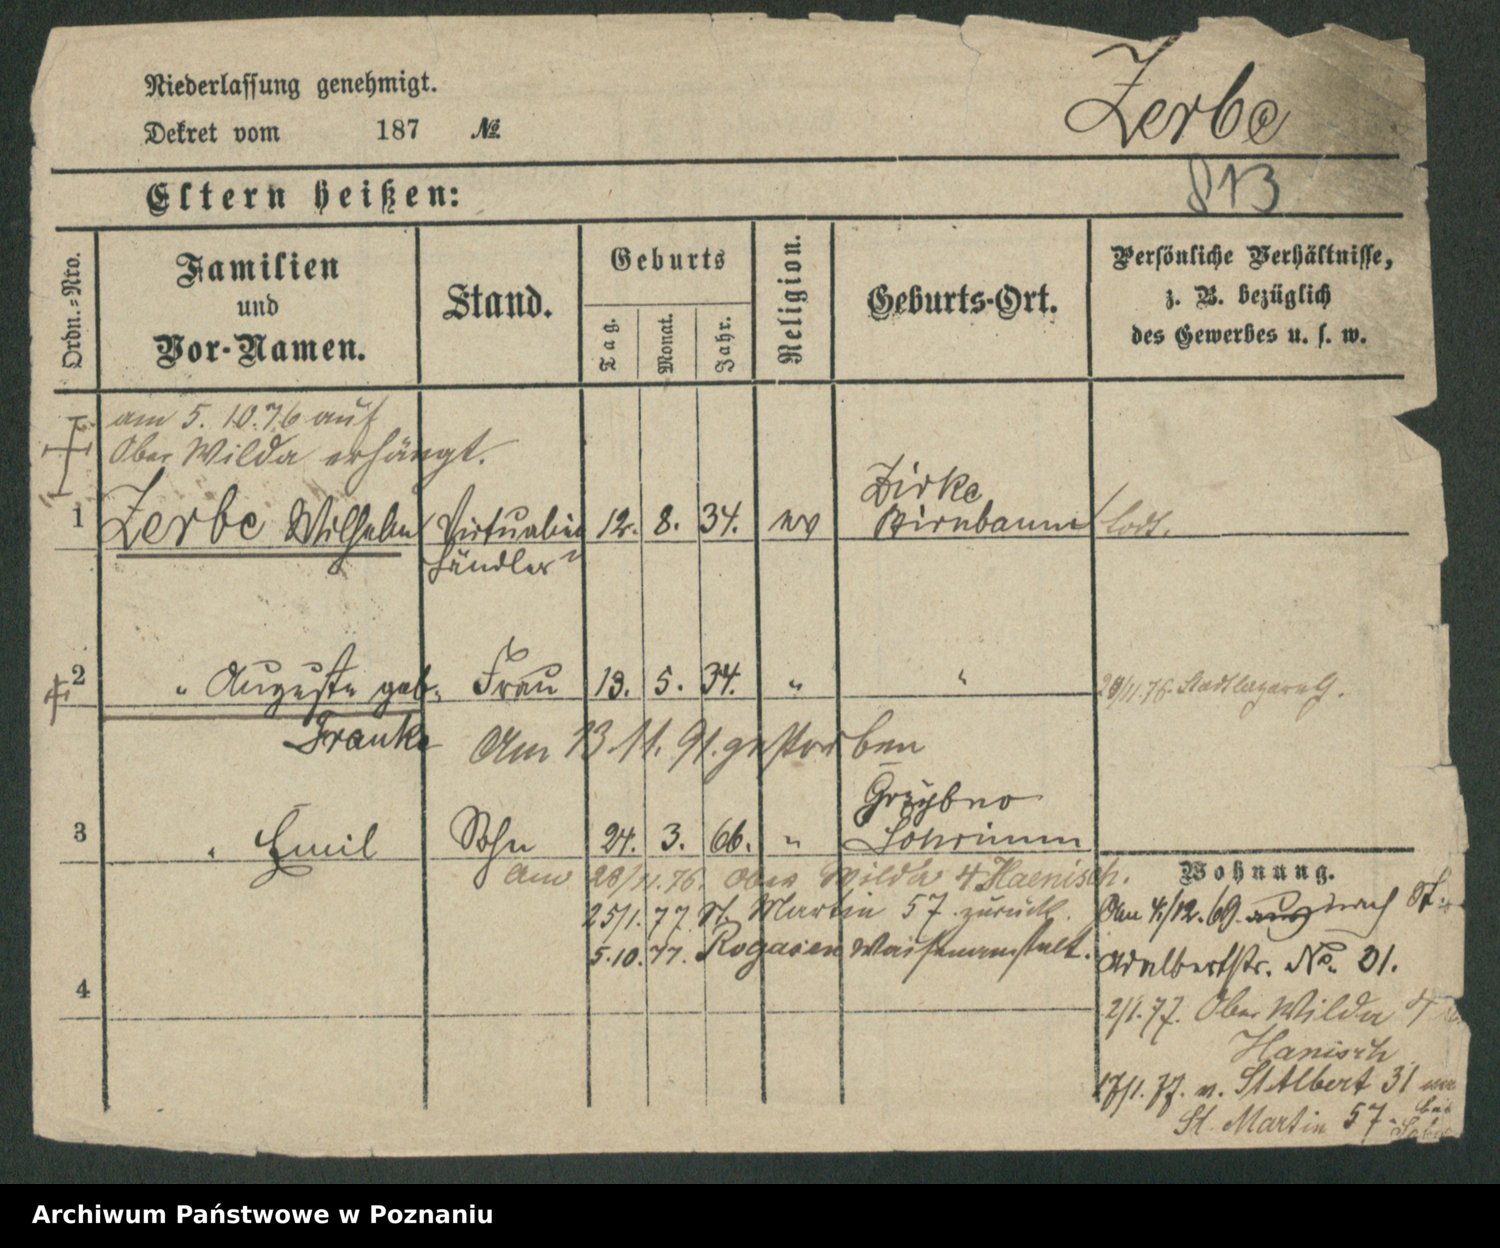 Niederlassung genehmigt.
Dekret vom 187 №
Zerbe
813
Eltern heißen:
Ordn.-Nro.
Familien
und
Vor-Namen.
Stand.
Geburts
Tag.
Monat.
Jahr.
Religion.
Geburts-Ort.
Persönliche Verhältnisse,
z. B. bezüglich
des Gewerbes u. s. w.
am 5. 10. 76 auf
Ober Wilda erhängt.
Zirke
1 Zerbe Wilhelm Victualien 12. 8. 34. ev Birnbaum todt.
händler
2 " Auguste geb. Frau 13. 5. 34. " " 29/11. 76. Stadtlazareth.
Franke
Am 13. 11. 91. gestorben
3 " Emil Sohn 24. 3. 66. "
Schrimm
am 28/11. 76. Ober Wilda 4 Haenisch.
25/1. 77. St. Martin 57. zurück.
5. 10. 77. Rogasen Waisenanstalt.
4
Wohnung.
Am 4/12. 69. aus nach St.
Adalbertstr. No. 31.
2/1. 77. Ober Wilda 4
Hanisch
17/1. 77. v. St Albert 31
St. Martin 57. bei